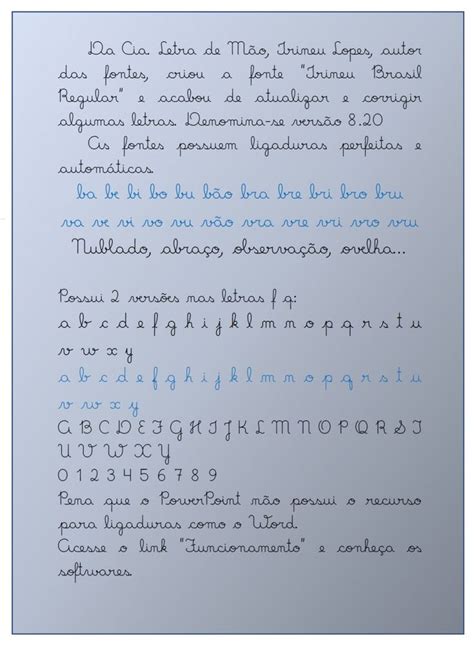 Da Cia. Letra de Mão, Irineu Lopes, autor
das fontes, criou a fonte "Irineu Brasil
Regular" e acabou de atualizar e corrigir
algumas letras. Denomina-se versão 8.20
As fontes possuem ligaduras perfeitas e
automáticas.
ba be bi bo bu bão bra bre bri bro bru
va ve vi vo vu vão vra vre vri vro vru
Nublado, abraço, observação, ovelha...
Possui 2 versões nas letras f q:
a b c d e f g h i j k l m n o p q r s t u
v w x y
a b c d e f g h i j k l m n o p q r s t u
v w x y
A B C D E F G H I J K L M N O P Q R S T
U V W X Y
0 1 2 3 4 5 6 7 8 9
Pena que o PowerPoint não possui o recurso
para ligaduras como o Word.
Acesse o link "Funcionamento" e conheça os
softwares.